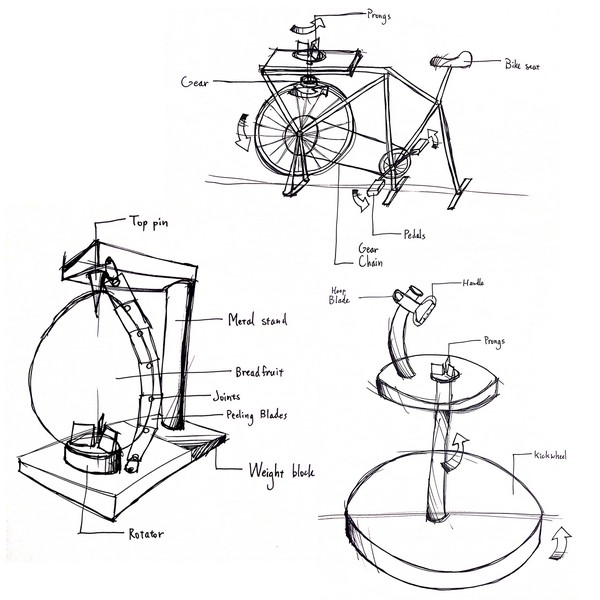 Prongs
Gear
Bike seat
Pedals
Gear
Chain
Top pin
Metal stand
Breadfruit
Joints
Peeling Blades
Weight block
Rotator
Hoop
Blade
Handle
Prongs
Kickwheel